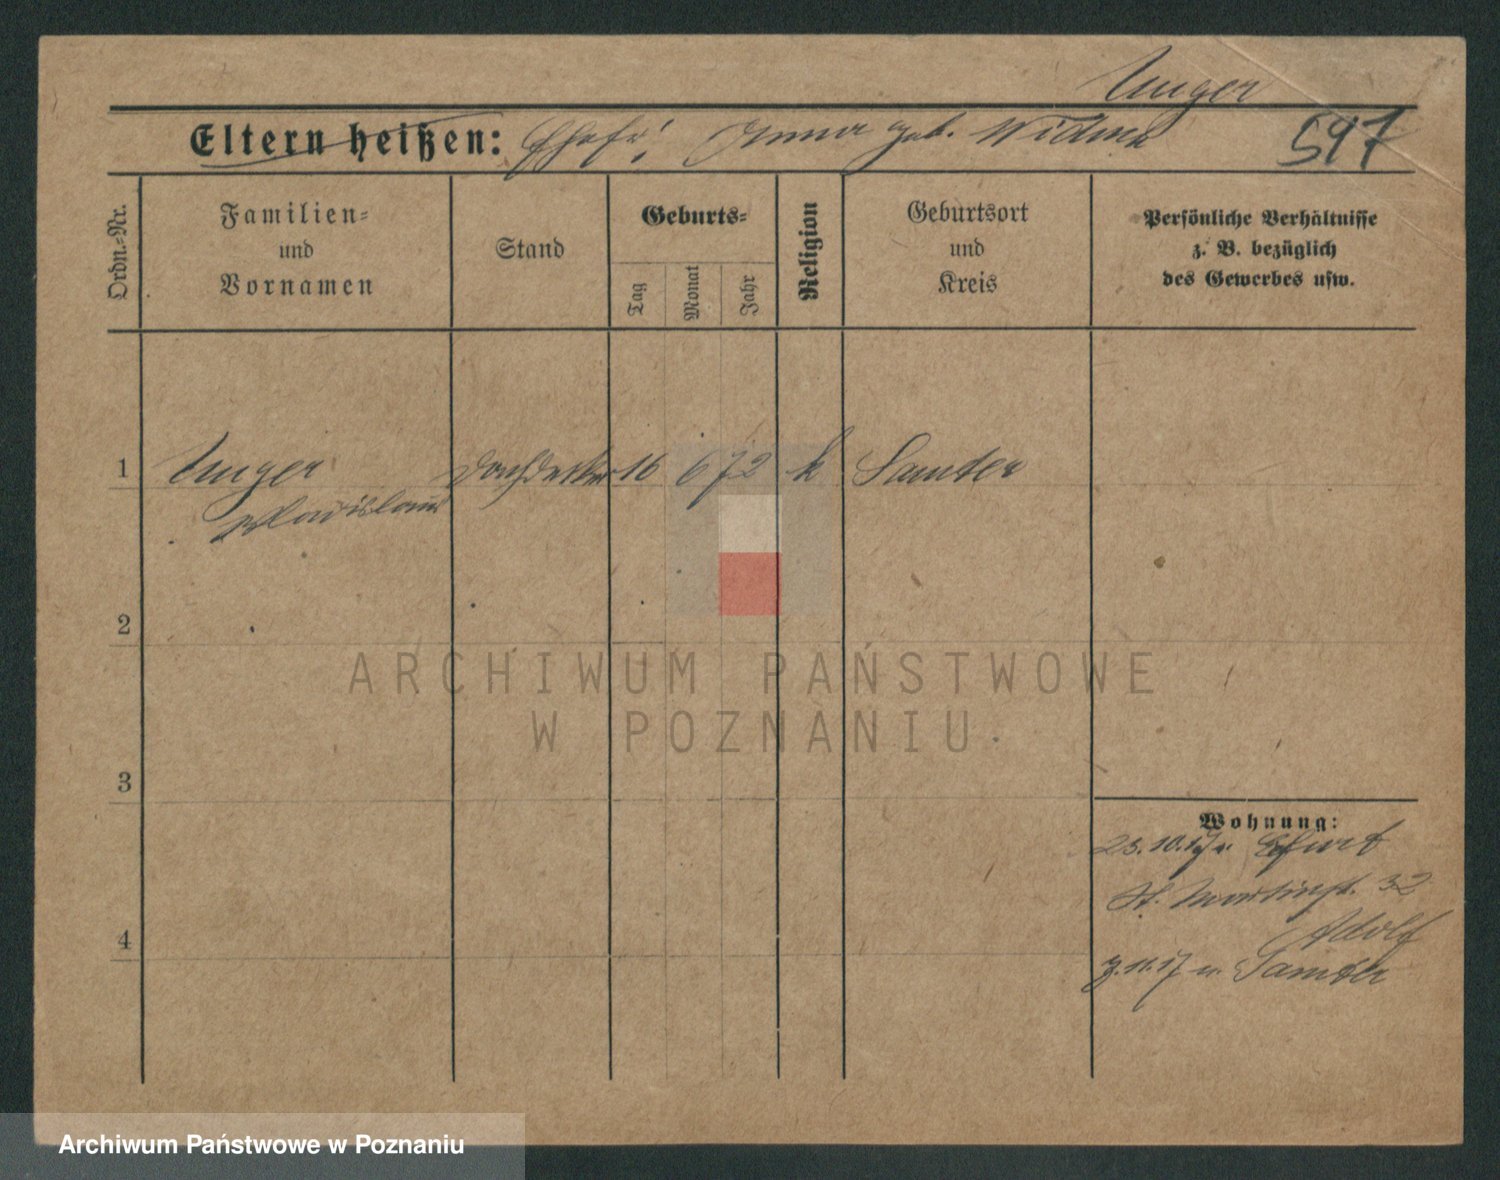 Unger
Eltern heißen: Ehefr: Anna geb. Widmer 597
Ordn.=Nr.
Familien=
und
Vornamen
Stand
Geburts=
Tag
Monat
Jahr
Religion
Geburtsort
und
Kreis
Persönliche Verhältnisse
z. B. bezüglich
des Gewerbes usw.
1 Unger Dachdecker 16 6 72 k Samter
Wladislaus
2
3
4
Wohnung:
23.10.17 v. Erfurt
St. Martinstr. 32
Adolf
7.11.17 n. Samter
ARCHIWUM PAŃSTWOWE
W POZNANIU
Archiwum Państwowe w Poznaniu